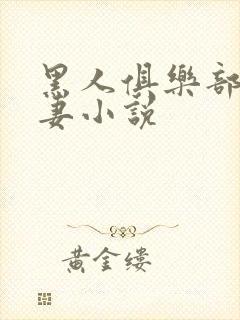 黑人俱樂部
妻小説
黃金縷